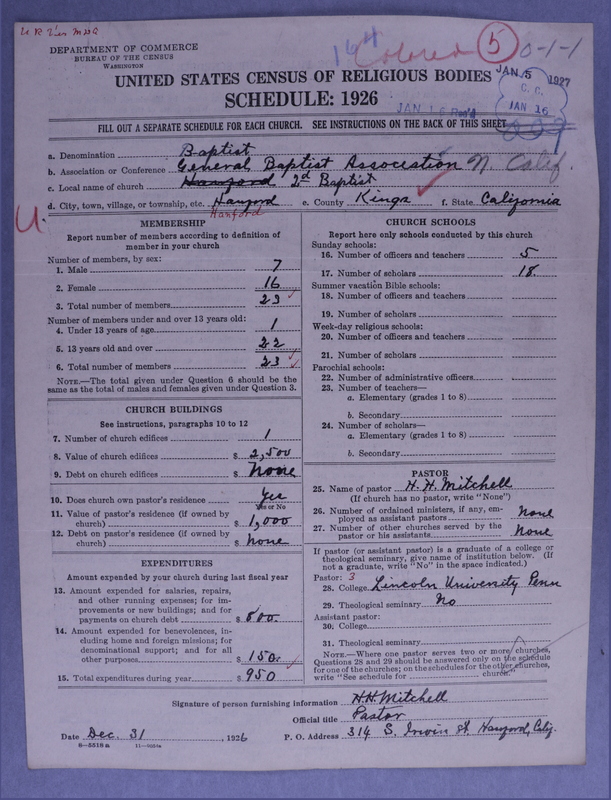 DEPARTMENT OF COMMERCE
BUREAU OF THE CENSUS
WASHINGTON
164 Colored 5 0-1-1
UNITED STATES CENSUS OF RELIGIOUS BODIES
SCHEDULE: 1926
JAN 5 1927
C. C.
JAN 16
JAN 16 Rec'd
FILL OUT A SEPARATE SCHEDULE FOR EACH CHURCH. SEE INSTRUCTIONS ON THE BACK OF THIS SHEET
a. Denomination Baptist
b. Association or Conference General Baptist Association N. Calif.
c. Local name of church Hanford 2d Baptist
d. City, town, village, or township, etc. Hanford e. County Kings f. State California
Hanford
U
MEMBERSHIP
Report number of members according to definition of
member in your church
Number of members, by sex:
1. Male 7
2. Female 16
3. Total number of members 23
Number of members under and over 13 years old:
4. Under 13 years of age 1
5. 13 years old and over 22
6. Total number of members 23
NOTE.—The total given under Question 6 should be the
same as the total of males and females given under Question 3.
CHURCH BUILDINGS
See instructions, paragraphs 10 to 12
7. Number of church edifices 1
8. Value of church edifices $ 2,500
9. Debt on church edifices $ None
10. Does church own pastor's residence Yes
Yes or No
11. Value of pastor's residence (if owned by
church) $ 1,000
12. Debt on pastor's residence (if owned by
church) $ None
EXPENDITURES
Amount expended by your church during last fiscal year
13. Amount expended for salaries, repairs,
and other running expenses; for im-
provements or new buildings; and for
payments on church debt $ 800.
14. Amount expended for benevolences, in-
cluding home and foreign missions; for
denominational support; and for all
other purposes $ 150.
15. Total expenditures during year $ 950
CHURCH SCHOOLS
Report here only schools conducted by this church
Sunday schools:
16. Number of officers and teachers 5
17. Number of scholars 18.
Summer vacation Bible schools:
18. Number of officers and teachers
19. Number of scholars
Week-day religious schools:
20. Number of officers and teachers
21. Number of scholars
Parochial schools:
22. Number of administrative officers
23. Number of teachers—
a. Elementary (grades 1 to 8)
b. Secondary
24. Number of scholars—
a. Elementary (grades 1 to 8)
b. Secondary
PASTOR
25. Name of pastor H. H. Mitchell
(If church has no pastor, write "None")
26. Number of ordained ministers, if any, em-
ployed as assistant pastors None
27. Number of other churches served by the
pastor or his assistants None
If pastor (or assistant pastor) is a graduate of a college or
theological seminary, give name of institution below. (If
not a graduate, write "No" in the space indicated.)
Pastor: 3
28. College Lincoln University Penn
29. Theological seminary No
Assistant pastor:
30. College
31. Theological seminary
NOTE.—Where one pastor serves two or more churches,
Questions 28 and 29 should be answered only on the schedule
for one of the churches; on the schedules for the other churches,
write "See schedule for church"
Signature of person furnishing information H. H. Mitchell
Official title Pastor
Date Dec. 31, 1926 P. O. Address 314 S. Irwin St. Hanford, Calif.
8—5518a